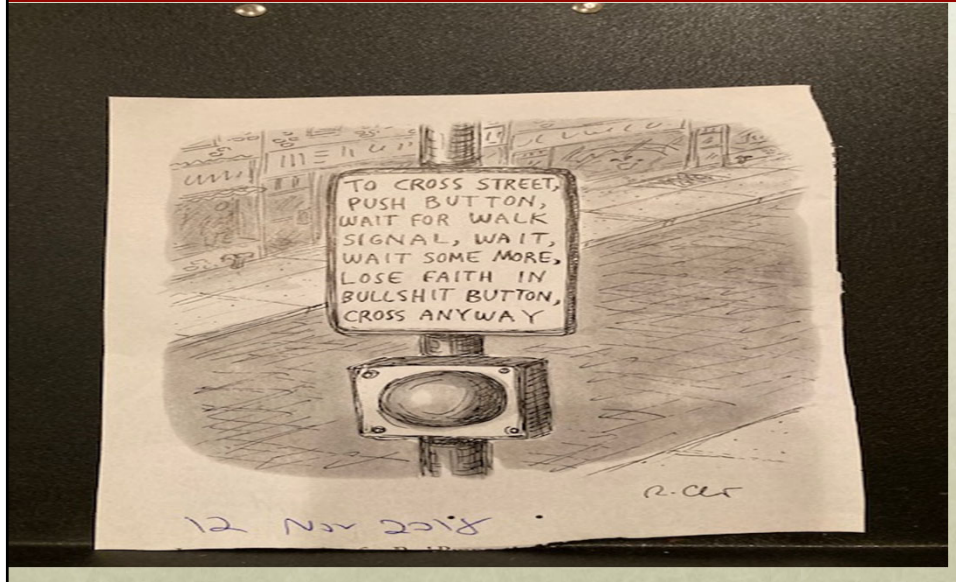 TO CROSS STREET,
PUSH BUTTON,
WAIT FOR WALK
SIGNAL, WAIT,
WAIT SOME MORE,
LOSE FAITH IN
BULLSHIT BUTTON,
CROSS ANYWAY
12 Nov 2018